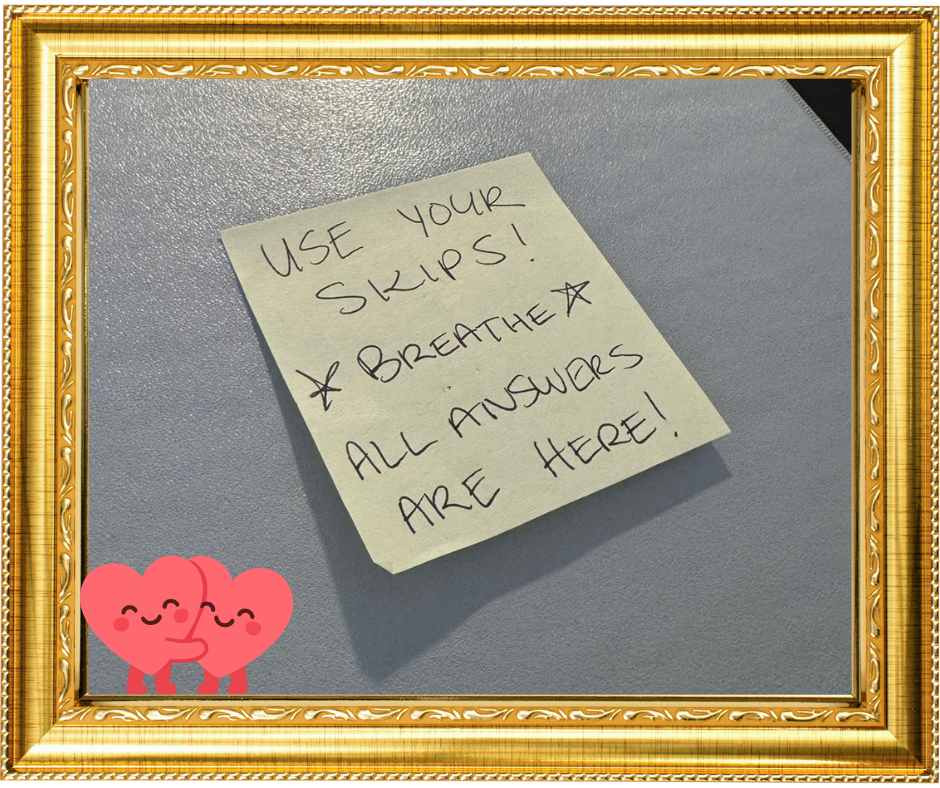 USE YOUR
SKIPS!
☆ BREATHE ☆
ALL ANSWERS
ARE HERE!